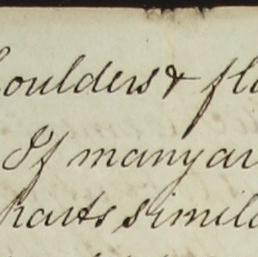 houlders & fl
If many ar
parts simila